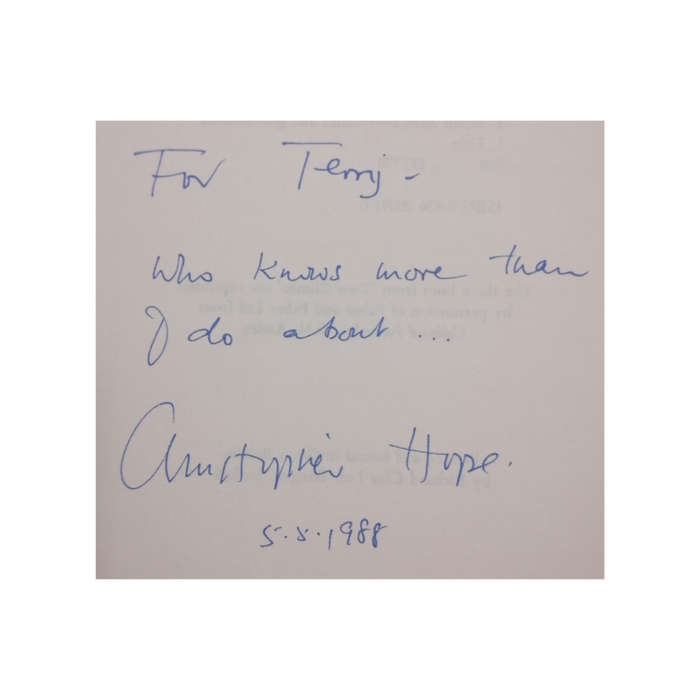 For Terry -
who knows more than
I do about ...
Christopher Hope.
5.5.1988